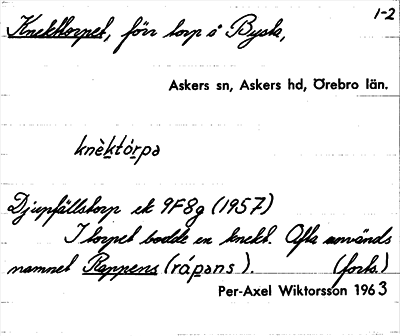 1-2
Knekttorpet, förr torp i Bysta,
Askers sn, Askers hd, Örebro län.
knèktórpa
Djupfällstorp ek 9F8g (1957)
I torpet bodde en knekt. Ofta används
namnet Rappens (rápans). (forts.)
Per-Axel Wiktorsson 1963